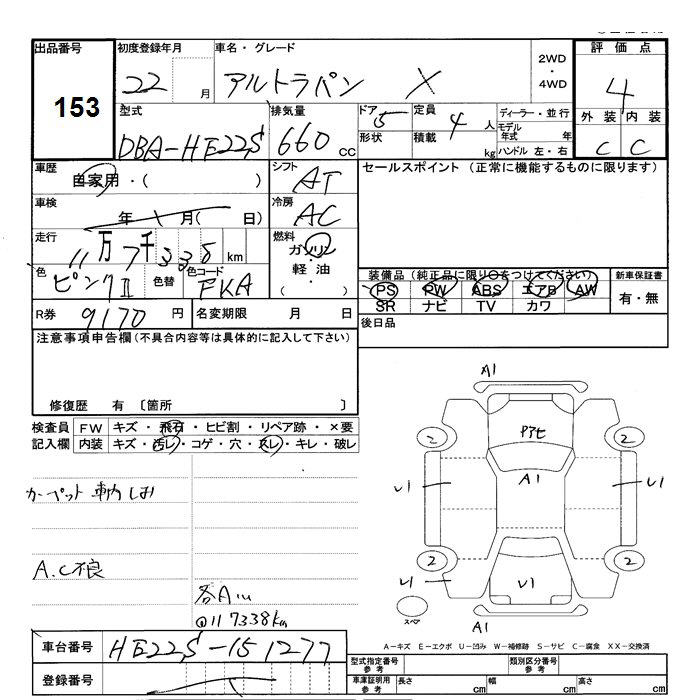 出品番号 153
初度登録年月 22 月
車名・グレード アルトラパン X
2WD・4WD
評価点 4
外装 C 内装 C
型式 DBA-HE22S
排気量 660 cc
ドア 5 形状
定員 4 人 積載 kg
ディーラー・並行
モデル年式 年
ハンドル 左・右
車歴 自家用・( )
シフト AT
セールスポイント (正常に機能するものに限ります)
車検 年 月( 日)
冷房 AC
走行 11万7千338 km
燃料 ガソリン・軽・油 ( )
色 ピンクⅡ 色替 色コード FKA
装備品 (純正品に限り○をつけてください)
PS PW ABS エアB AW
SR ナビ TV カワ
新車保証書 有・無
R券 9170 円 名変期限 月 日
後日品
注意事項申告欄 (不具合内容等は具体的に記入して下さい)
修復歴 有 〔箇所 〕
検査員記入欄
FW キズ・飛石・ヒビ割・リペア跡・×要
内装 キズ・汚レ・コゲ・穴・スレ・キレ・破レ
カーペット
A.C不良
117338km
A1
2 2
A1
U1 U1
2 2
U1 U1
スペア
A1
A-キズ E-エクボ U-凹み W-補修跡 S-サビ C-腐食 XX-交換済
車台番号 HE22S-151277
登録番号
型式指定番号 参考 類別区分番号 参考
車庫証明用 参考 長さ cm 幅 cm 高さ cm